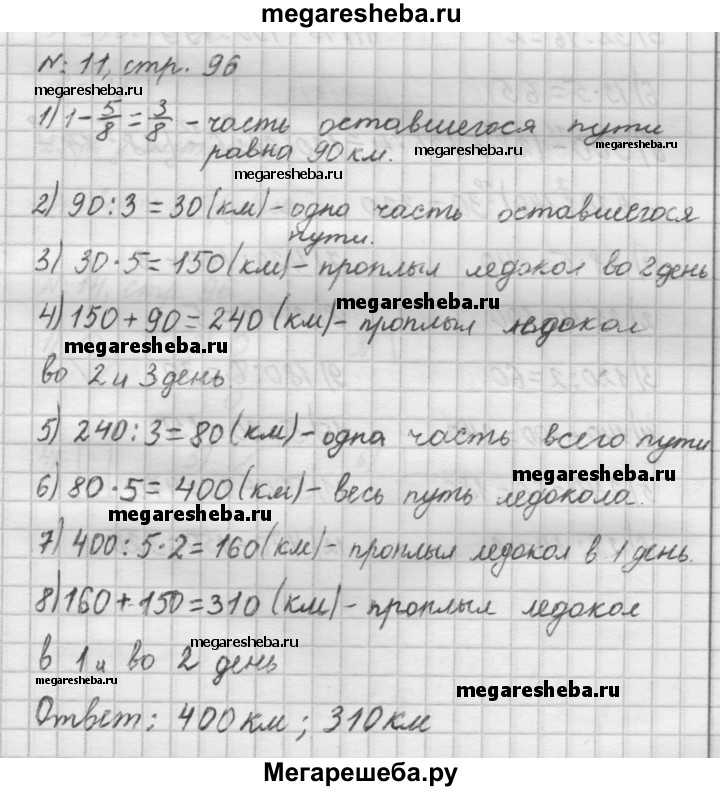 megaresheba.ru
№ 11, стр. 96
megaresheba.ru
1) 1 - 5/8 = 3/8 - часть оставшегося пути
равна 90 км. megaresheba.ru megaresheba.ru
megaresheba.ru
2) 90 : 3 = 30 (км) - одна часть оставшегося
пути.
3) 30 · 5 = 150 (км) - проплыл ледокол во 2 день
megaresheba.ru
4) 150 + 90 = 240 (км) - проплыл ледокол
megaresheba.ru
во 2 и 3 день
5) 240 : 3 = 80 (км) - одна часть всего пути
megaresheba.ru
6) 80 · 5 = 400 (км) - весь путь ледокола.
megaresheba.ru
7) 400 : 5 · 2 = 160 (км) - проплыл ледокол в 1 день.
8) 160 + 150 = 310 (км) - проплыл ледокол
megaresheba.ru
в 1 и во 2 день
megaresheba.ru
megaresheba.ru
Ответ: 400 км ; 310 км
Мегарешеба.ру